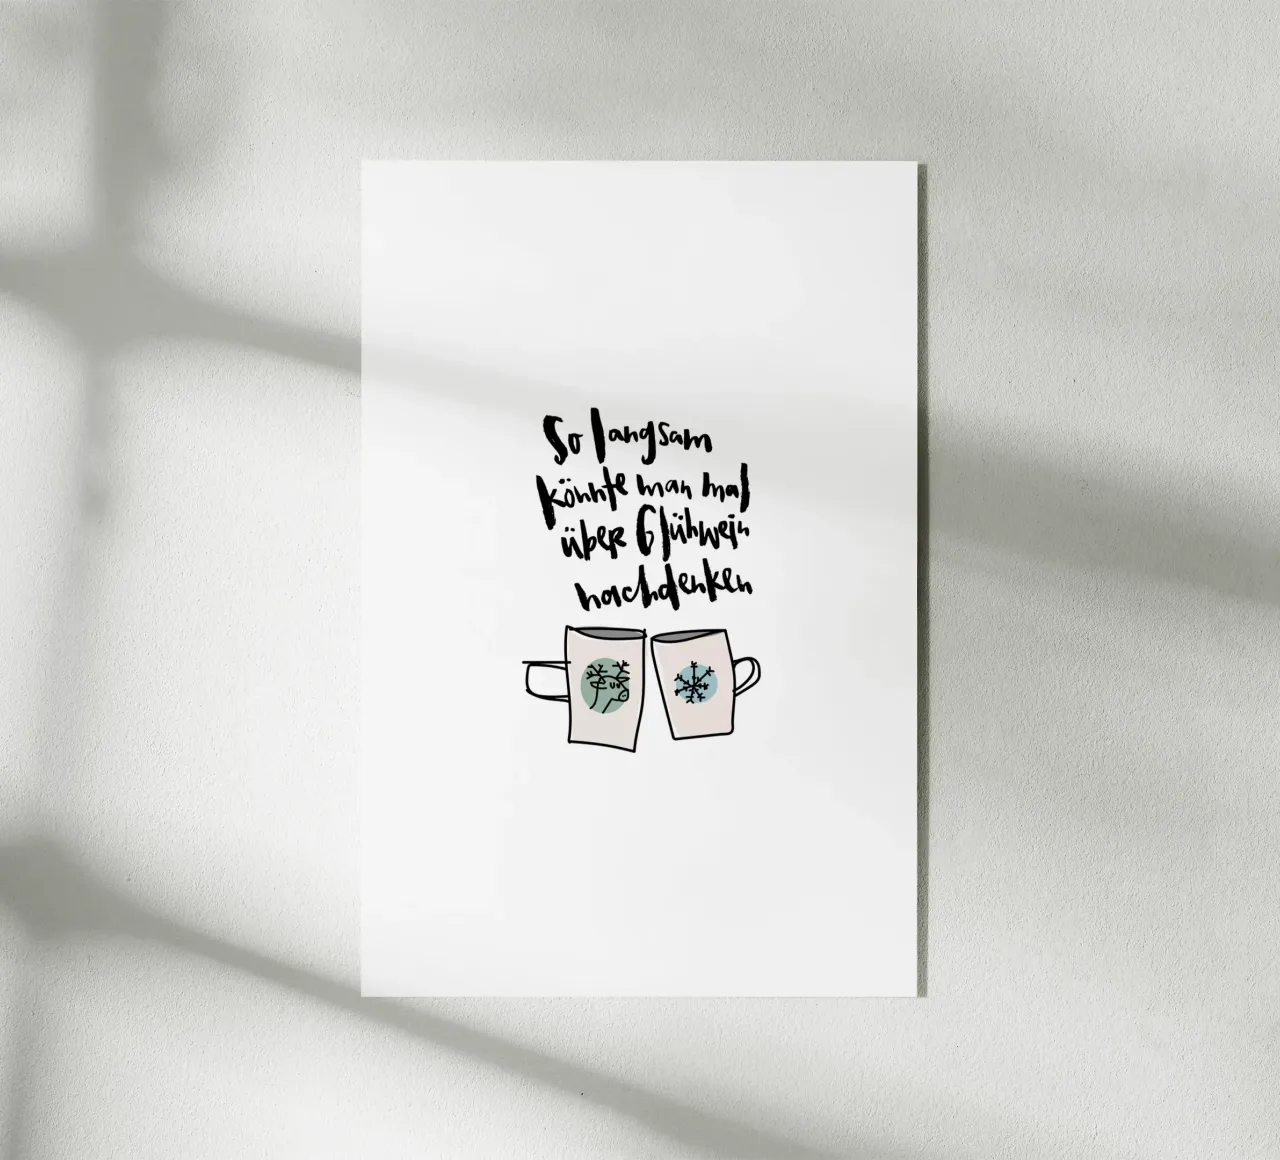 So langsam
könnte man mal
über Glühwein
nachdenken